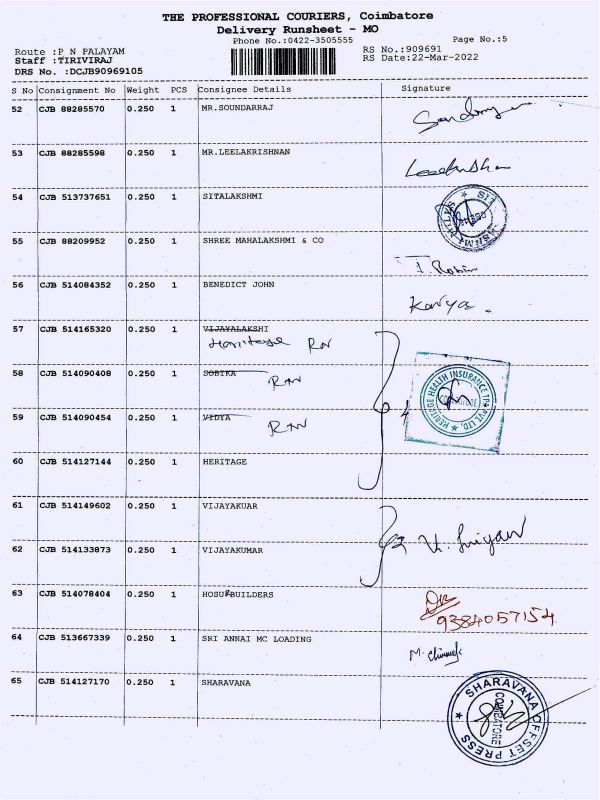 THE PROFESSIONAL COURIERS, Coimbatore
Delivery Runsheet - MO
Phone No.:0422-3505555
Page No.:5
Route :P N PALAYAM
RS No.:909691
Staff :TIRIVIRAJ
RS Date:22-Mar-2022
DRS No. :DCJB90969105
S No Consignment No Weight PCS Consignee Details Signature
52 CJB 88285570 0.250 1 MR.SOUNDARRAJ
53 CJB 88285598 0.250 1 MR.LEELAKRISHNAN
54 CJB 513737651 0.250 1 SITALAKSHMI
55 CJB 88209952 0.250 1 SHREE MAHALAKSHMI & CO
56 CJB 514084352 0.250 1 BENEDICT JOHN
Kavya.
57 CJB 514165320 0.250 1 VIJAYALAKSHI
Heritage RN
58 CJB 514090408 0.250 1 SOBIKA
RN
59 CJB 514090454 0.250 1 VIDYA
RN
HERITAGE HEALTH INSURANCE TPA PVT LTD.
60 CJB 514127144 0.250 1 HERITAGE
4
61 CJB 514149602 0.250 1 VIJAYAKUAR
2
62 CJB 514133873 0.250 1 VIJAYAKUMAR
63 CJB 514078404 0.250 1 HOSUR BUILDERS
9384057154
64 CJB 513667339 0.250 1 SRI ANNAI MC LOADING
65 CJB 514127170 0.250 1 SHARAVANA
SHARAVANA OFFSET PRESS
COIMBATORE